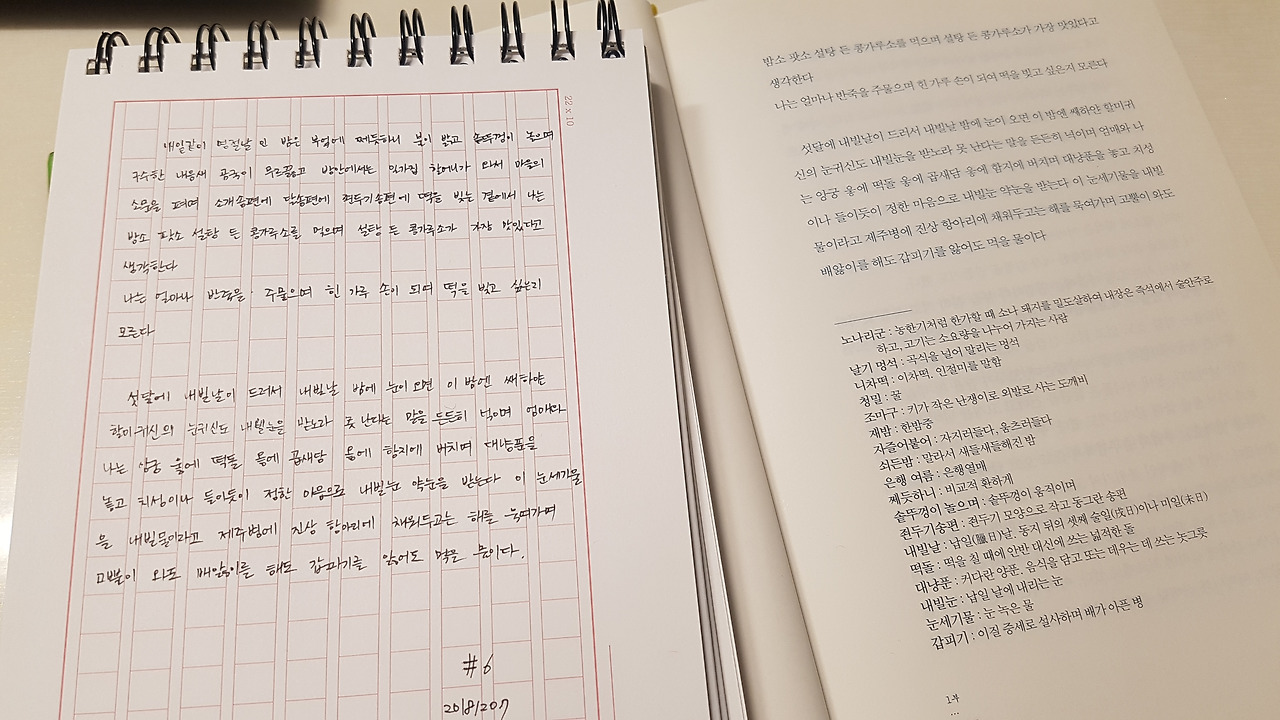 22 x 10
내일같이 명절날 인 밤은 부엌에 쩨듯하니 불이 밝고 솥뚜껑이 놀으며
구수한 내음새 곰국이 무르끓고 방안에서는 일가집 할머니가 와서 마을의
소문을 펴며 조개송편에 달송편에 진두기송편에 떡을 빚는 곁에서 나는
밤소 팟소 설탕 든 콩가루소를 먹으며 설탕 든 콩가루소가 가장 맛있다고
생각한다
나는 얼마나 반죽을 주물으며 힌 가루 손이 되여 떡을 빚고 싶은지
모른다
섯달에 내빌날이 드러서 내빌날 밤에 눈이 오면 이 밤엔 쌔하얀
할미귀신의 눈귀신도 내빌눈을 받노라 못 난다는 말을 든든히 녁이며 엄매와
나는 앙궁 웋에 떡돌 웋에 곱새담 웋에 함지에 버치며 대냥푼을
놓고 치성이나 들이듯이 정한 마음으로 내빌눈 약눈을 받는다 이 눈세기물
을 내빌물이라고 제주병에 진상 항아리에 채워두고는 해를 묵여가며
고뿔이 와도 배앓이를 해도 갑피기를 앓어도 먹을 물이다.
#6
20181207
밤소 팟소 설탕 든 콩가루소를 먹으며 설탕 든 콩가루소가 가장 맛있다고
생각한다
나는 얼마나 반죽을 주물으며 힌 가루 손이 되여 떡을 빚고 싶은지 모른다
섯달에 내빌날이 드러서 내빌날 밤에 눈이 오면 이 밤엔 쌔하얀 할미귀
신의 눈귀신도 내빌눈을 받노라 못 난다는 말을 든든히 녁이며 엄매와 나
는 앙궁 웋에 떡돌 웋에 곱새담 웋에 함지에 버치며 대냥푼을 놓고 치성
이나 들이듯이 정한 마음으로 내빌눈 약눈을 받는다 이 눈세기물을 내빌
물이라고 제주병에 진상 항아리에 채워두고는 해를 묵여가며 고뿔이 와도
배앓이를 해도 갑피기를 앓어도 먹을 물이다
노나리군 : 농한기처럼 한가할 때 소나 돼지를 밀도살하여 내장은 즉석에서 술안주로
하고, 고기는 소요량을 나누어 가지는 사람
날기 멍석 : 곡식을 널어 말리는 멍석
니차떡 : 이차떡. 인절미를 말함
청밀 : 꿀
조마구 : 키가 작은 난쟁이로 외발로 사는 도깨비
재밤 : 한밤중
자즐어붙어 : 자지러들다. 움츠러들다
쇠든밤 : 말라서 새들새들해진 밤
은행 여름 : 은행열매
쩨듯하니 : 비교적 환하게
솥뚜껑이 놀으며 : 솥뚜껑이 움직이며
진두기송편 : 진두기 모양으로 작고 동그란 송편
내빌날 : 납일(臘日)날. 동지 뒤의 셋째 술일(戌日)이나 미일(未日)
떡돌 : 떡을 칠 때에 안반 대신에 쓰는 넓적한 돌
대냥푼 : 커다란 양푼. 음식을 담고 또는 데우는 데 쓰는 놋그릇
내빌눈 : 납일 날에 내리는 눈
눈세기물 : 눈 녹은 물
갑피기 : 이질 증세로 설사하며 배가 아픈 병
1부
…